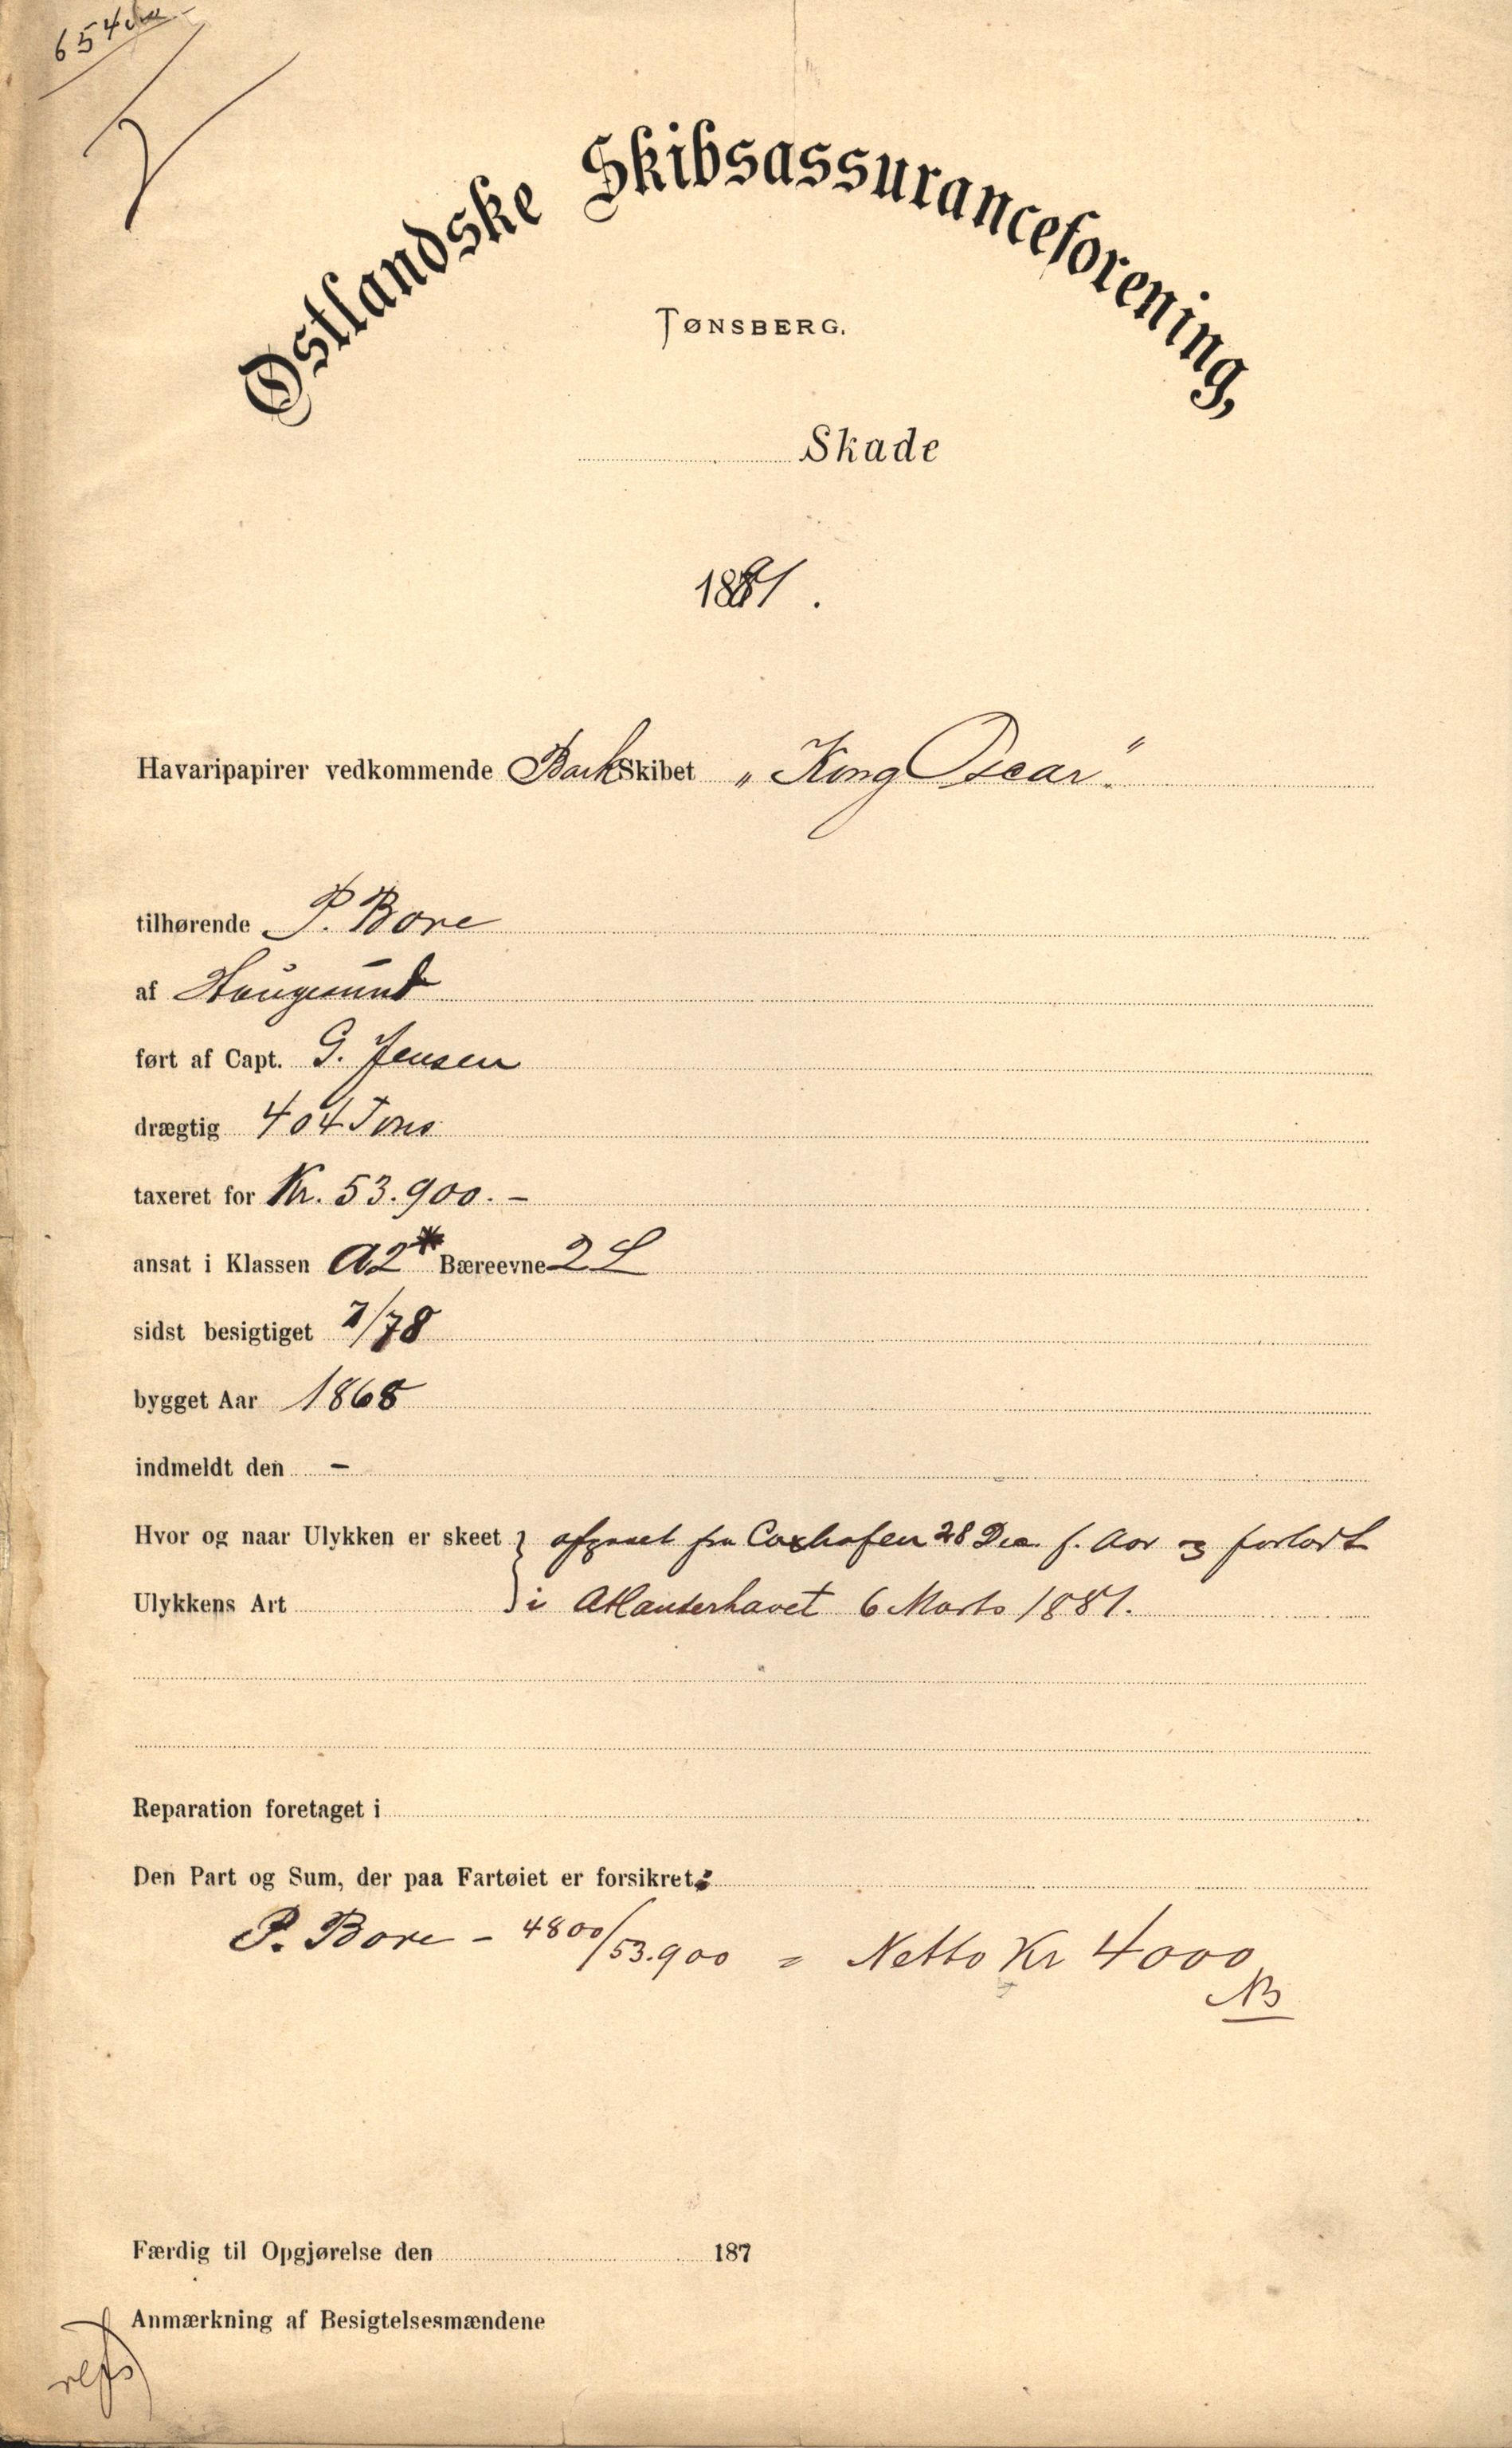 654
Østlandske Skibsassuranceforening,
TØNSBERG.
Skade
1881.
Havaripapirer vedkommende Bark Skibet „Kong Oscar"
tilhørende P. Bore
af Haugesund
ført af Capt. G. Jensen
drægtig 404 Tons
taxeret for Kr. 53.900.-
ansat i Klassen A2* Bæreevne 2 L
sidst besigtiget 7/78
bygget Aar 1868
indmeldt den -
Hvor og naar Ulykken er skeet } afgaaet fra Coxhafen 28 Dec. f. Aar og forladt
Ulykkens Art i Atlanterhavet 6 Marts 1881.
Reparation foretaget i
Den Part og Sum, der paa Fartøiet er forsikret:
P. Bore - 4800/53.900 = Netto Kr 4000
NB
Færdig til Opgjørelse den 187
Anmærkning af Besigtelsesmændene